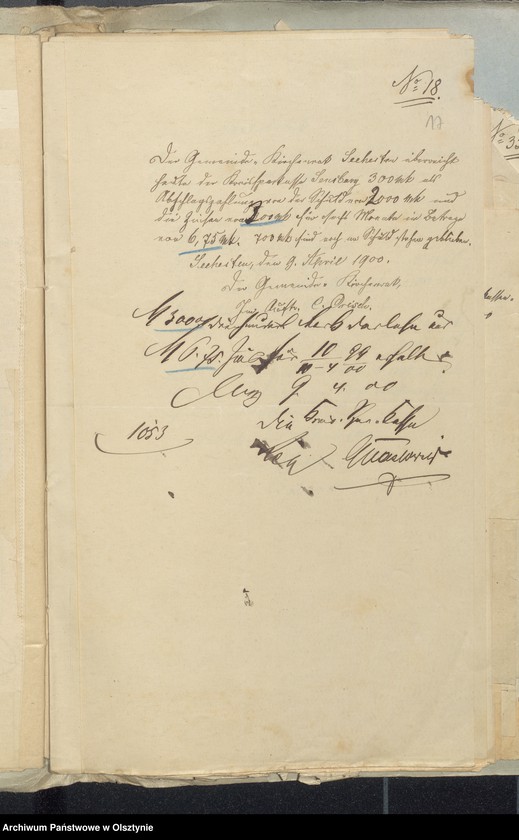 No 18.
17
No 3
Der Gemeinde-Kirchenrat Seehesten überreicht
heute der Kreissparkasse Sensburg 300 Mk als
Abschlagszahlung von der Schuld von 2000 Mk und
die Zinsen von 300 Mk für sechs Monate im Betrage
von 6,75 Mk. 700 Mk sind noch an Schuld stehen geblieben.
Seehesten, den 9. April 1900.
Der Gemeinde-Kirchenrat.
Im Auftr. C.
M 300 dreihundert Mark Darlehn und
M 6,75 Zins für 10 99 4 00 erhalten
9. 4. 00
Die Kreis-Spar-Kasse
1053
Archiwum Państwowe w Olsztynie